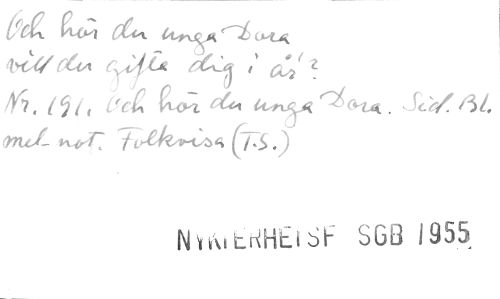 Och hör du unga Dora
vill du gifta dig i år?
Nr. 191. Och hör du unga Dora. Sid. Bl.
mel-not. Folkvisa (T.S.)
NYKTERHETSF SGB 1955